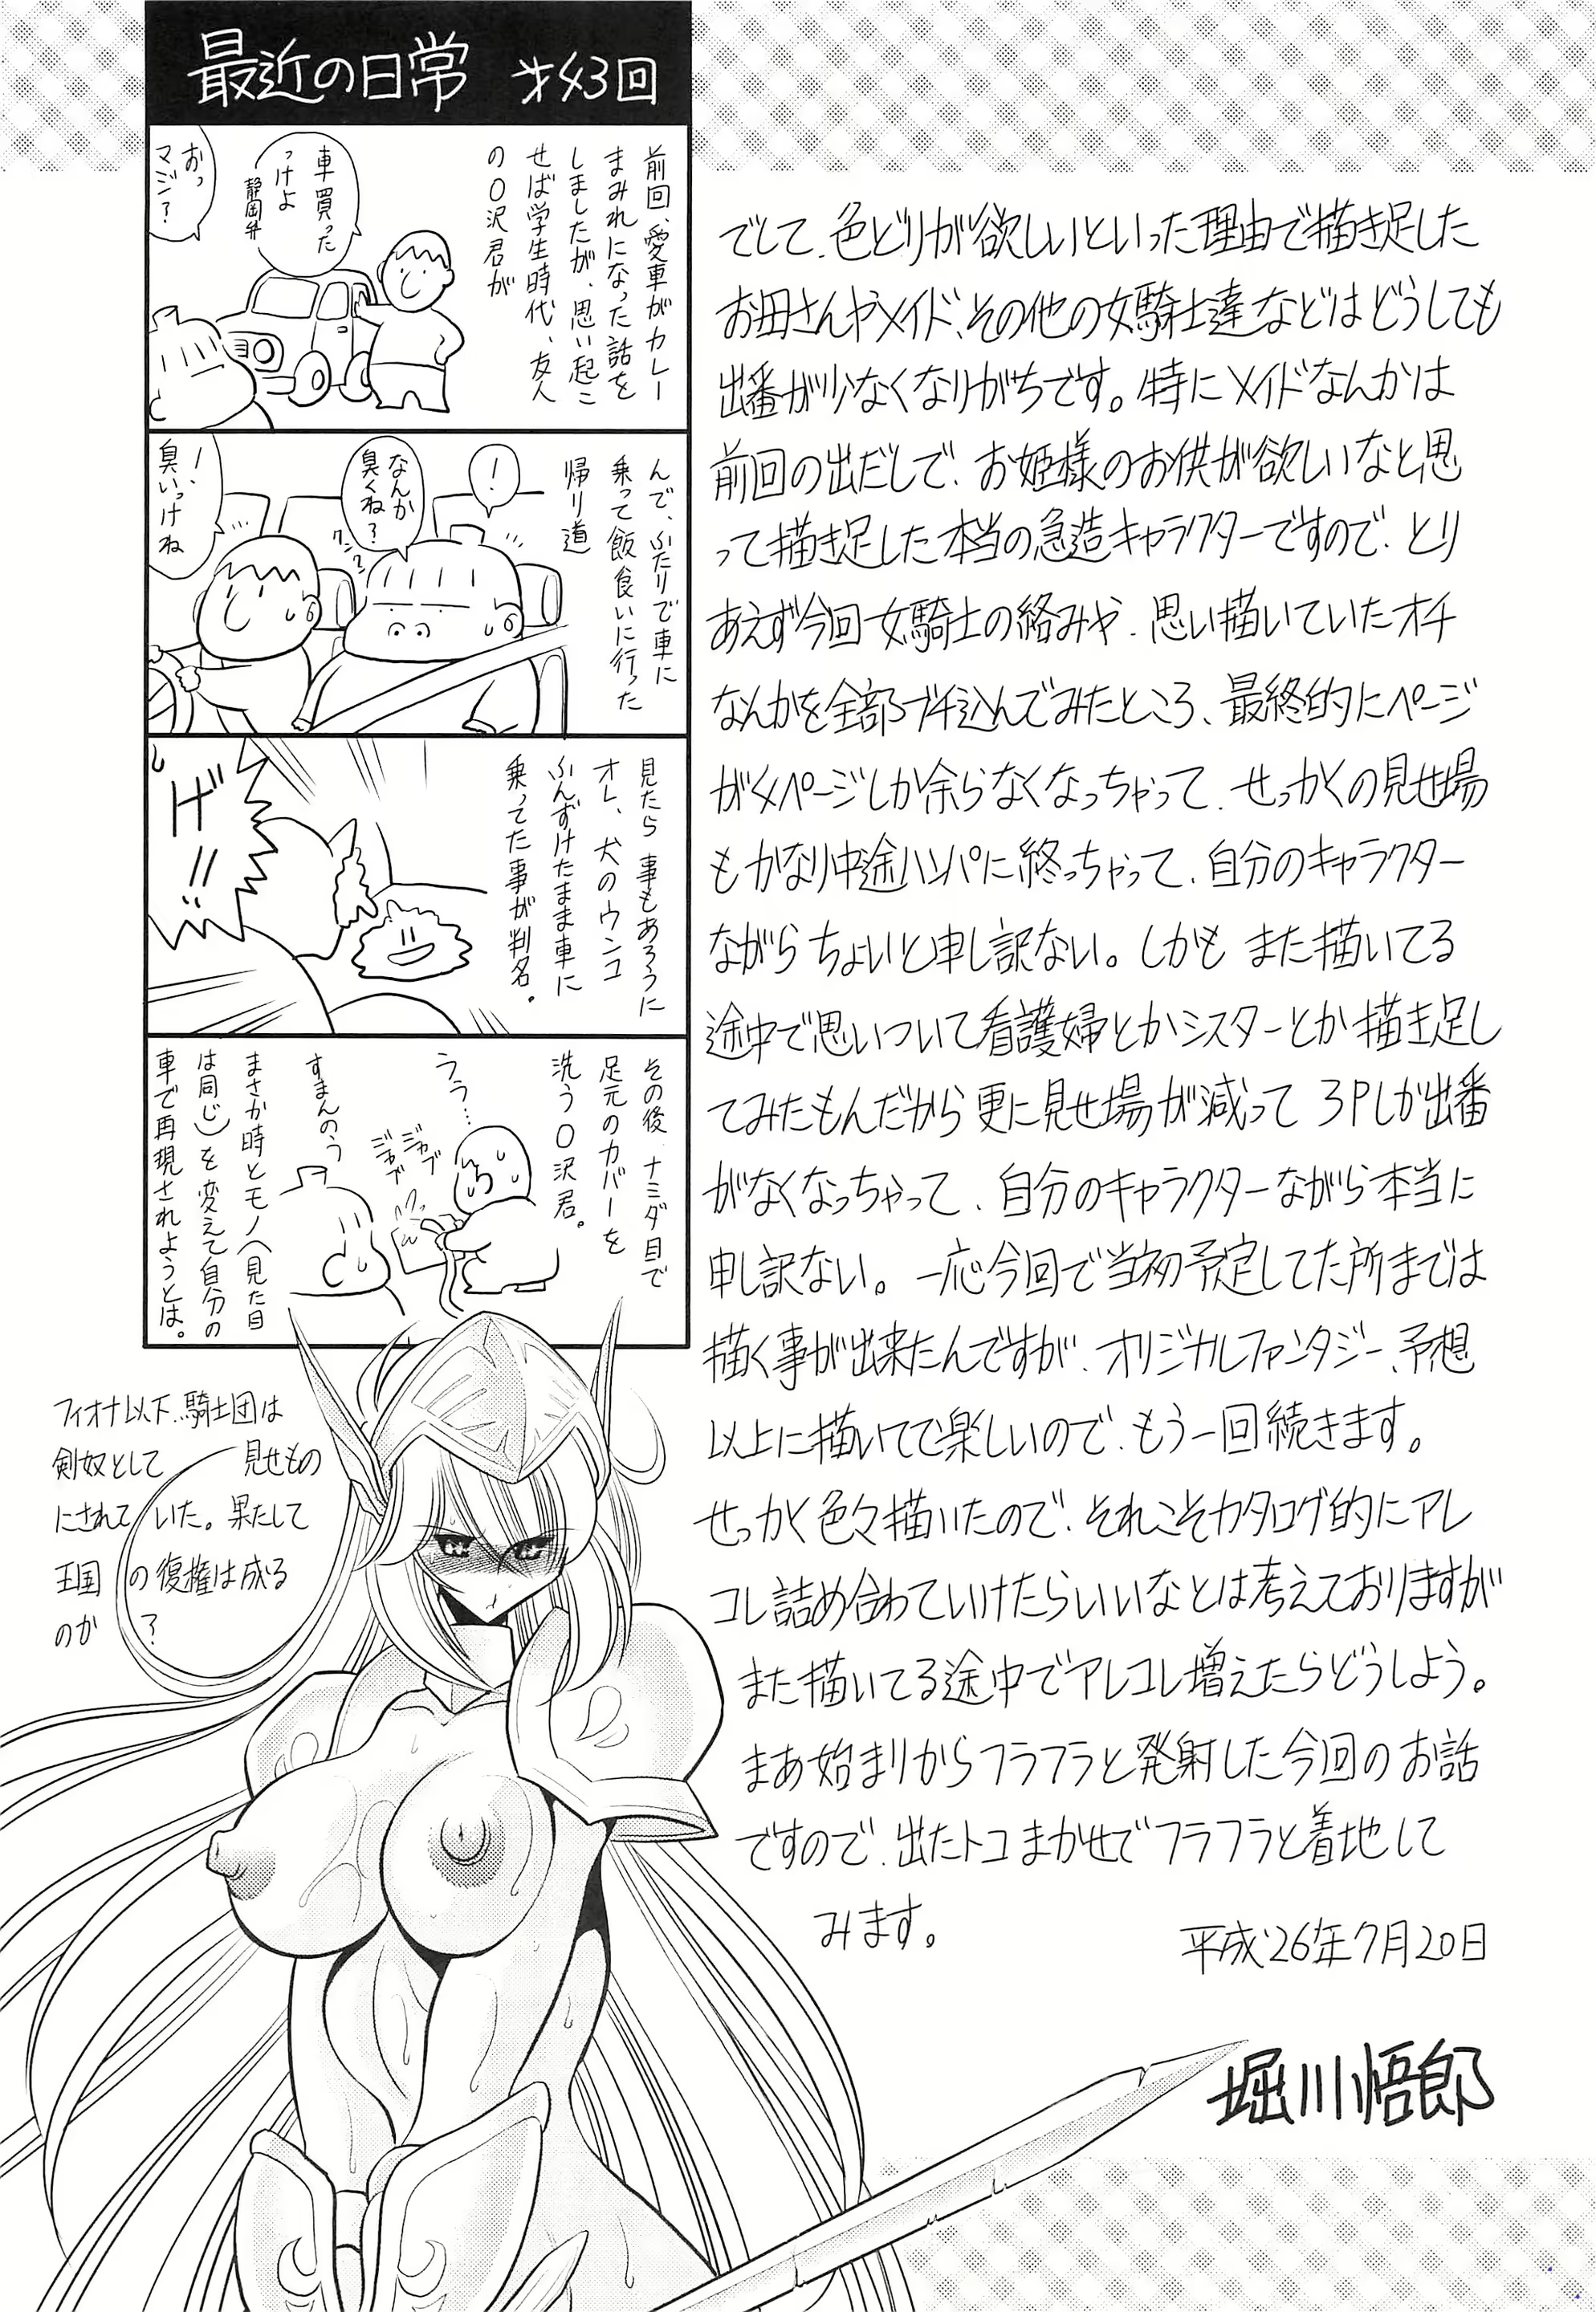 最近の日常 才43回
前回、愛車がカレー
まみれになった話を
しましたが、思い起こ
せば学生時代、友人
の〇沢君が
車買った
っけよ
静岡弁
おっ
マジ?
んで、ふたりで車に
乗って飯食いに行った
帰り道
!
なんか
臭くね?
クンクン
臭いっけね
見たら事もあろうに
オレ、犬のウンコ
ふんずけたまま車に
乗ってた事が判名。
げ!!
その後、ナミダ目で
足元のカバーを
洗う〇沢君。
うう…
ジャブ
ジャブ
すまんのう
まさか時とモノ(見た目
は同じ)を変えて自分の
車で再現されようとは。
でして、色どりが欲しいといった理由で描き足した
お母さんやメイド、その他の女騎士達などはどうしても
出番が少なくなりがちです。特にメイドなんかは
前回の出だしで、お姫様のお供が欲しいなと思
って描き足した本当の急造キャラクターですので、とり
あえず今回女騎士の絡みや、思い描いていたオチ
なんかを全部ブチ込んでみたところ、最終的にページ
が4ページしか余らなくなっちゃって、せっかくの見せ場
もかなり中途ハンパに終っちゃって、自分のキャラクター
ながらちょいと申し訳ない。しかもまた描いてる
途中で思いついて看護婦とかシスターとか描き足し
てみたもんだから更に見せ場が減って3Pしか出番
がなくなっちゃって、自分のキャラクターながら本当に
申し訳ない。一応今回で当初予定してた所までは
描く事が出来たんですが、オリジナルファンタジー、予想
以上に描いてて楽しいので、もう一回続きます。
せっかく色々描いたので、それこそカタログ的にアレ
コレ詰め合わていけたらいいなとは考えておりますが
また描いてる途中でアレコレ増えたらどうしよう。
まあ始まりからフラフラと発射した今回のお話
ですので、出たトコまかせでフラフラと着地して
みます。
平成26年7月20日
堀川悟郎
フィオナ以下、騎士団は
剣奴として見せもの
にされていた。果たして
王国の復権は成る
のか?